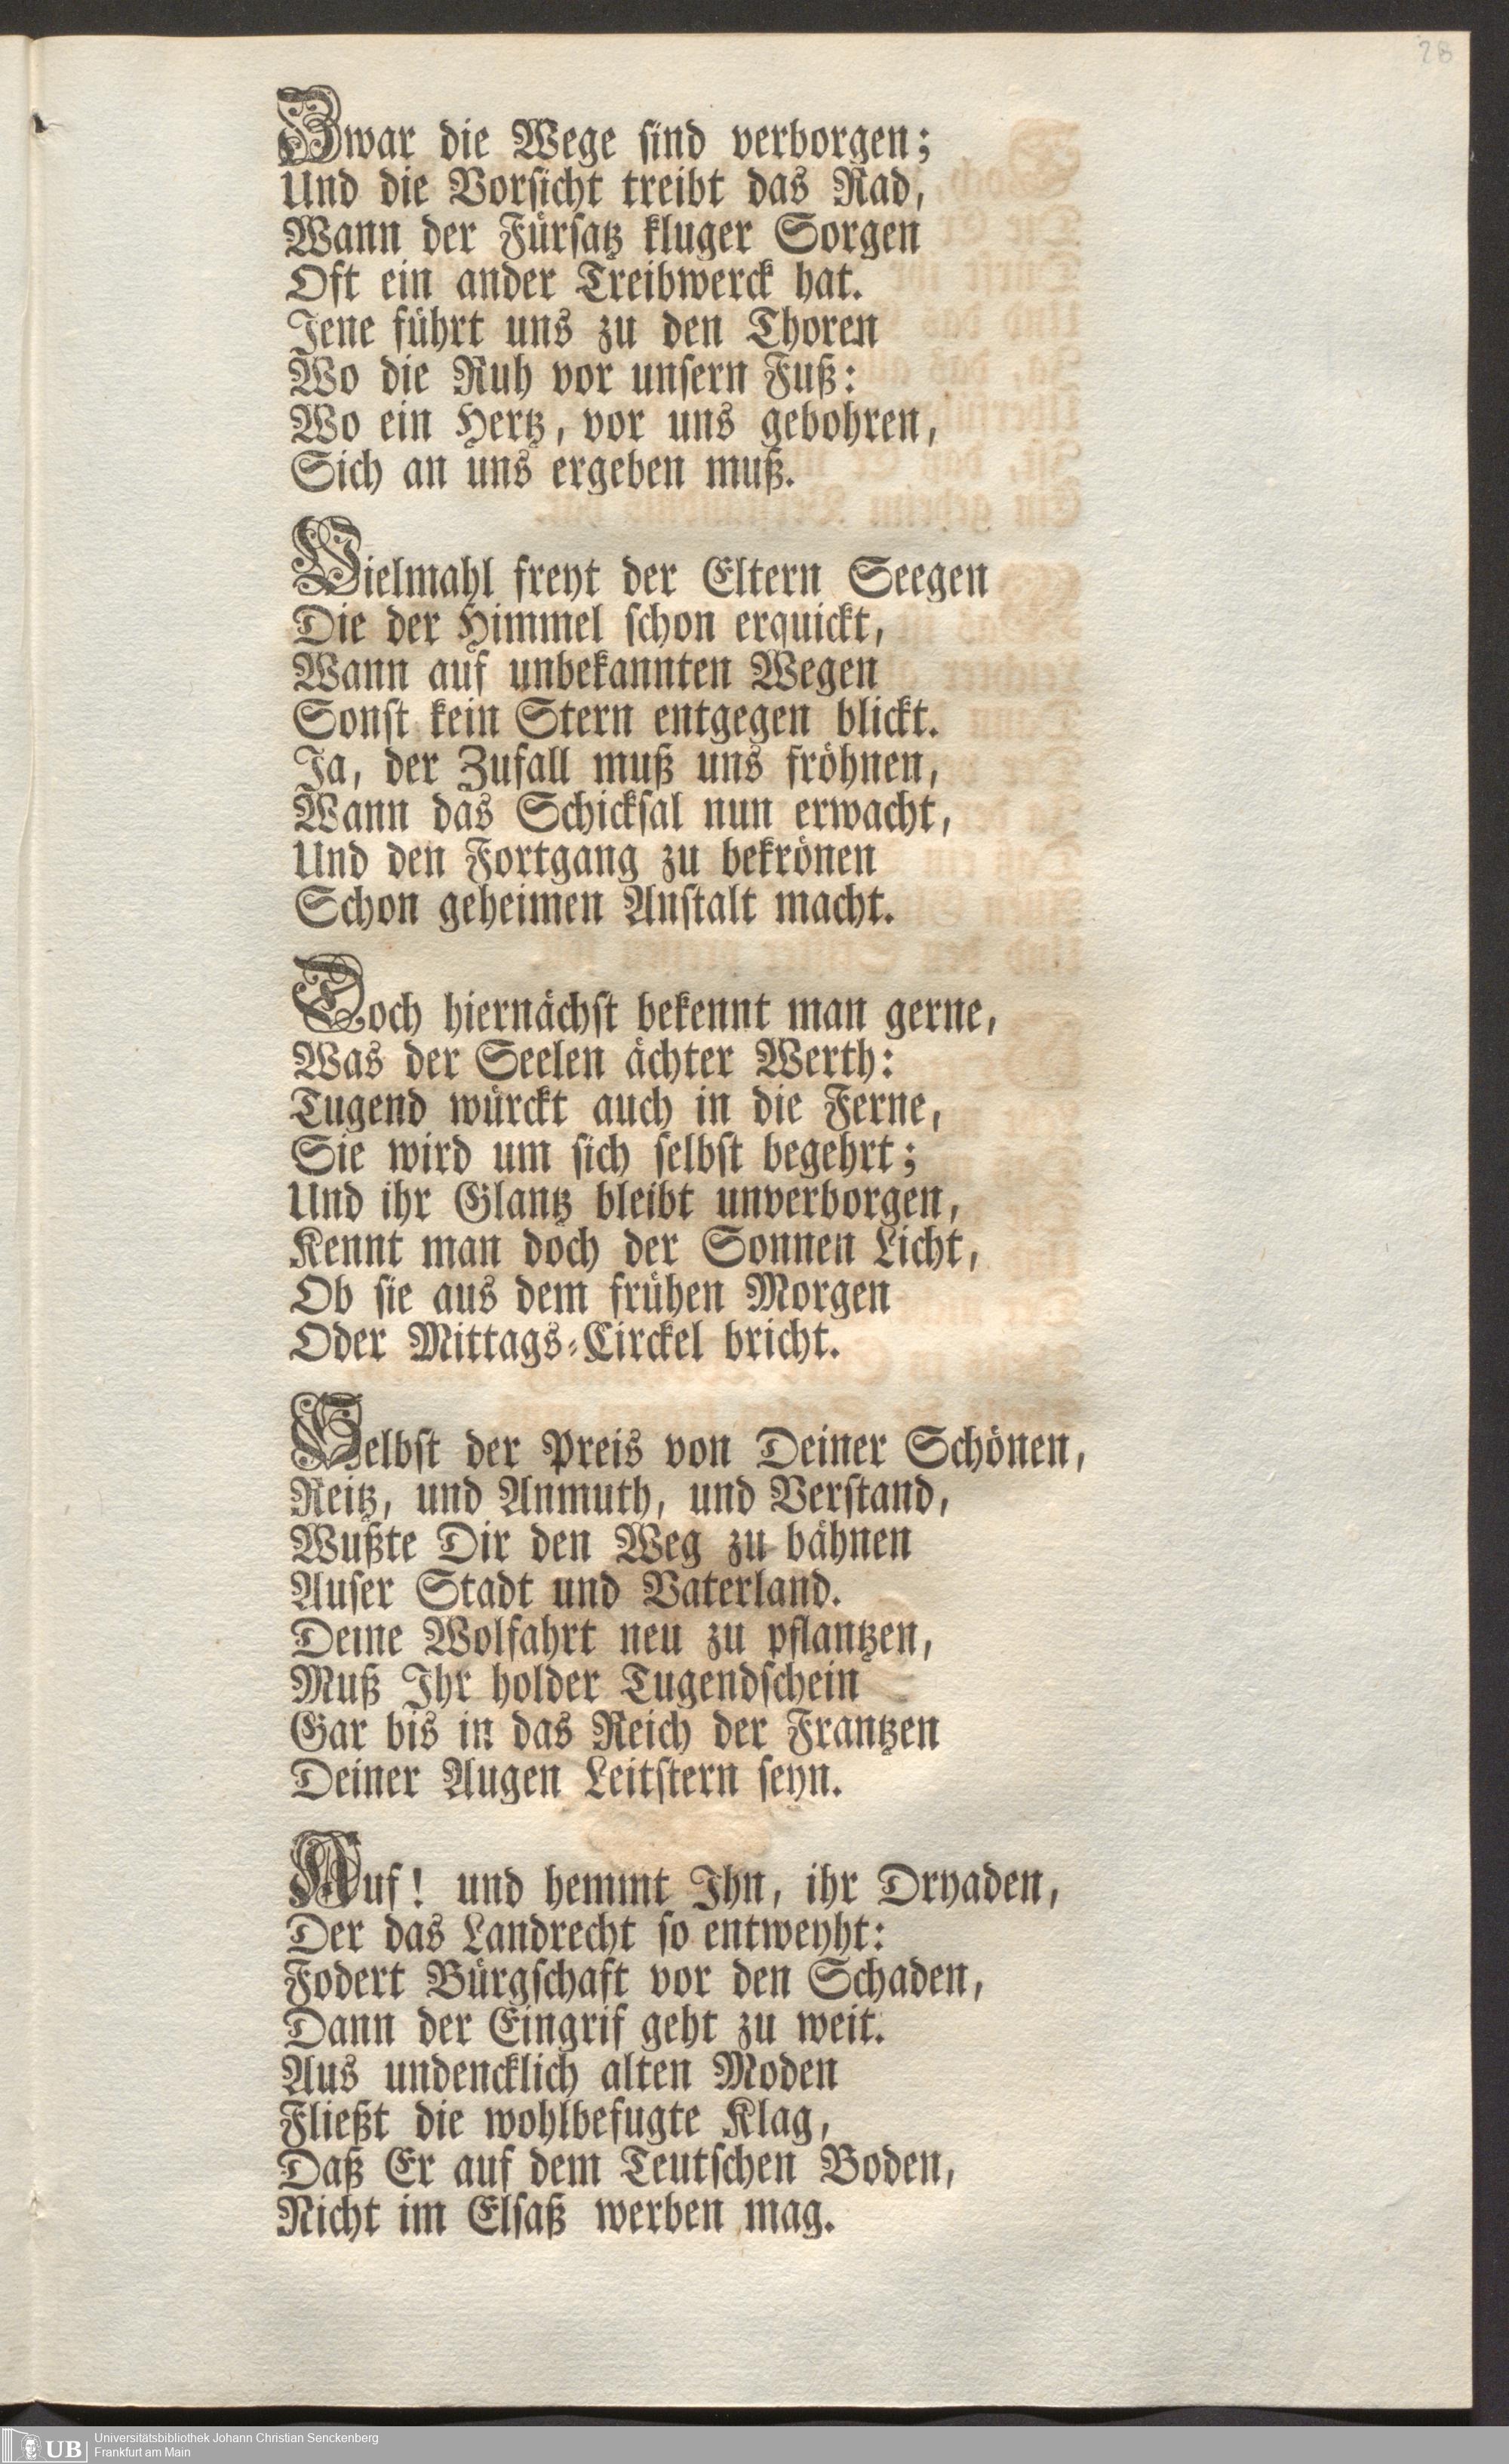 28
Zwar die Wege sind verborgen;
Und die Vorsicht treibt das Rad,
Wann der Fürsatz kluger Sorgen
Oft ein ander Treibwerck hat.
Jene führt uns zu den Thoren
Wo die Ruh vor unsern Fuß:
Wo ein Hertz, vor uns gebohren,
Sich an uns ergeben muß.
Vielmahl freyt der Eltern Seegen
Die der Himmel schon erquickt,
Wann auf unbekannten Wegen
Sonst kein Stern entgegen blickt.
Ja, der Zufall muß uns fröhnen,
Wann das Schicksal nun erwacht,
Und den Fortgang zu bekrönen
Schon geheimen Anstalt macht.
Doch hiernächst bekennt man gerne,
Was der Seelen ächter Werth:
Tugend würckt auch in die Ferne,
Sie wird um sich selbst begehrt;
Und ihr Glantz bleibt unverborgen,
Kennt man doch der Sonnen Licht,
Ob sie aus dem frühen Morgen
Oder Mittags-Circkel bricht.
Selbst der Preis von Deiner Schönen,
Reitz, und Anmuth, und Verstand,
Wußte Dir den Weg zu bähnen
Auser Stadt und Vaterland.
Deine Wolfahrt neu zu pflantzen,
Muß Ihr holder Tugendschein
Gar bis in das Reich der Frantzen
Deiner Augen Leitstern seyn.
Auf! und hemmt Ihn, ihr Dryaden,
Der das Landrecht so entweyht:
Fodert Bürgschaft vor den Schaden,
Dann der Eingrif geht zu weit.
Aus undencklich alten Moden
Fließt die wohlbefugte Klag,
Daß Er auf dem Teutschen Boden,
Nicht im Elsaß werben mag.
UB Universitätsbibliothek Johann Christian Senckenberg
Frankfurt am Main